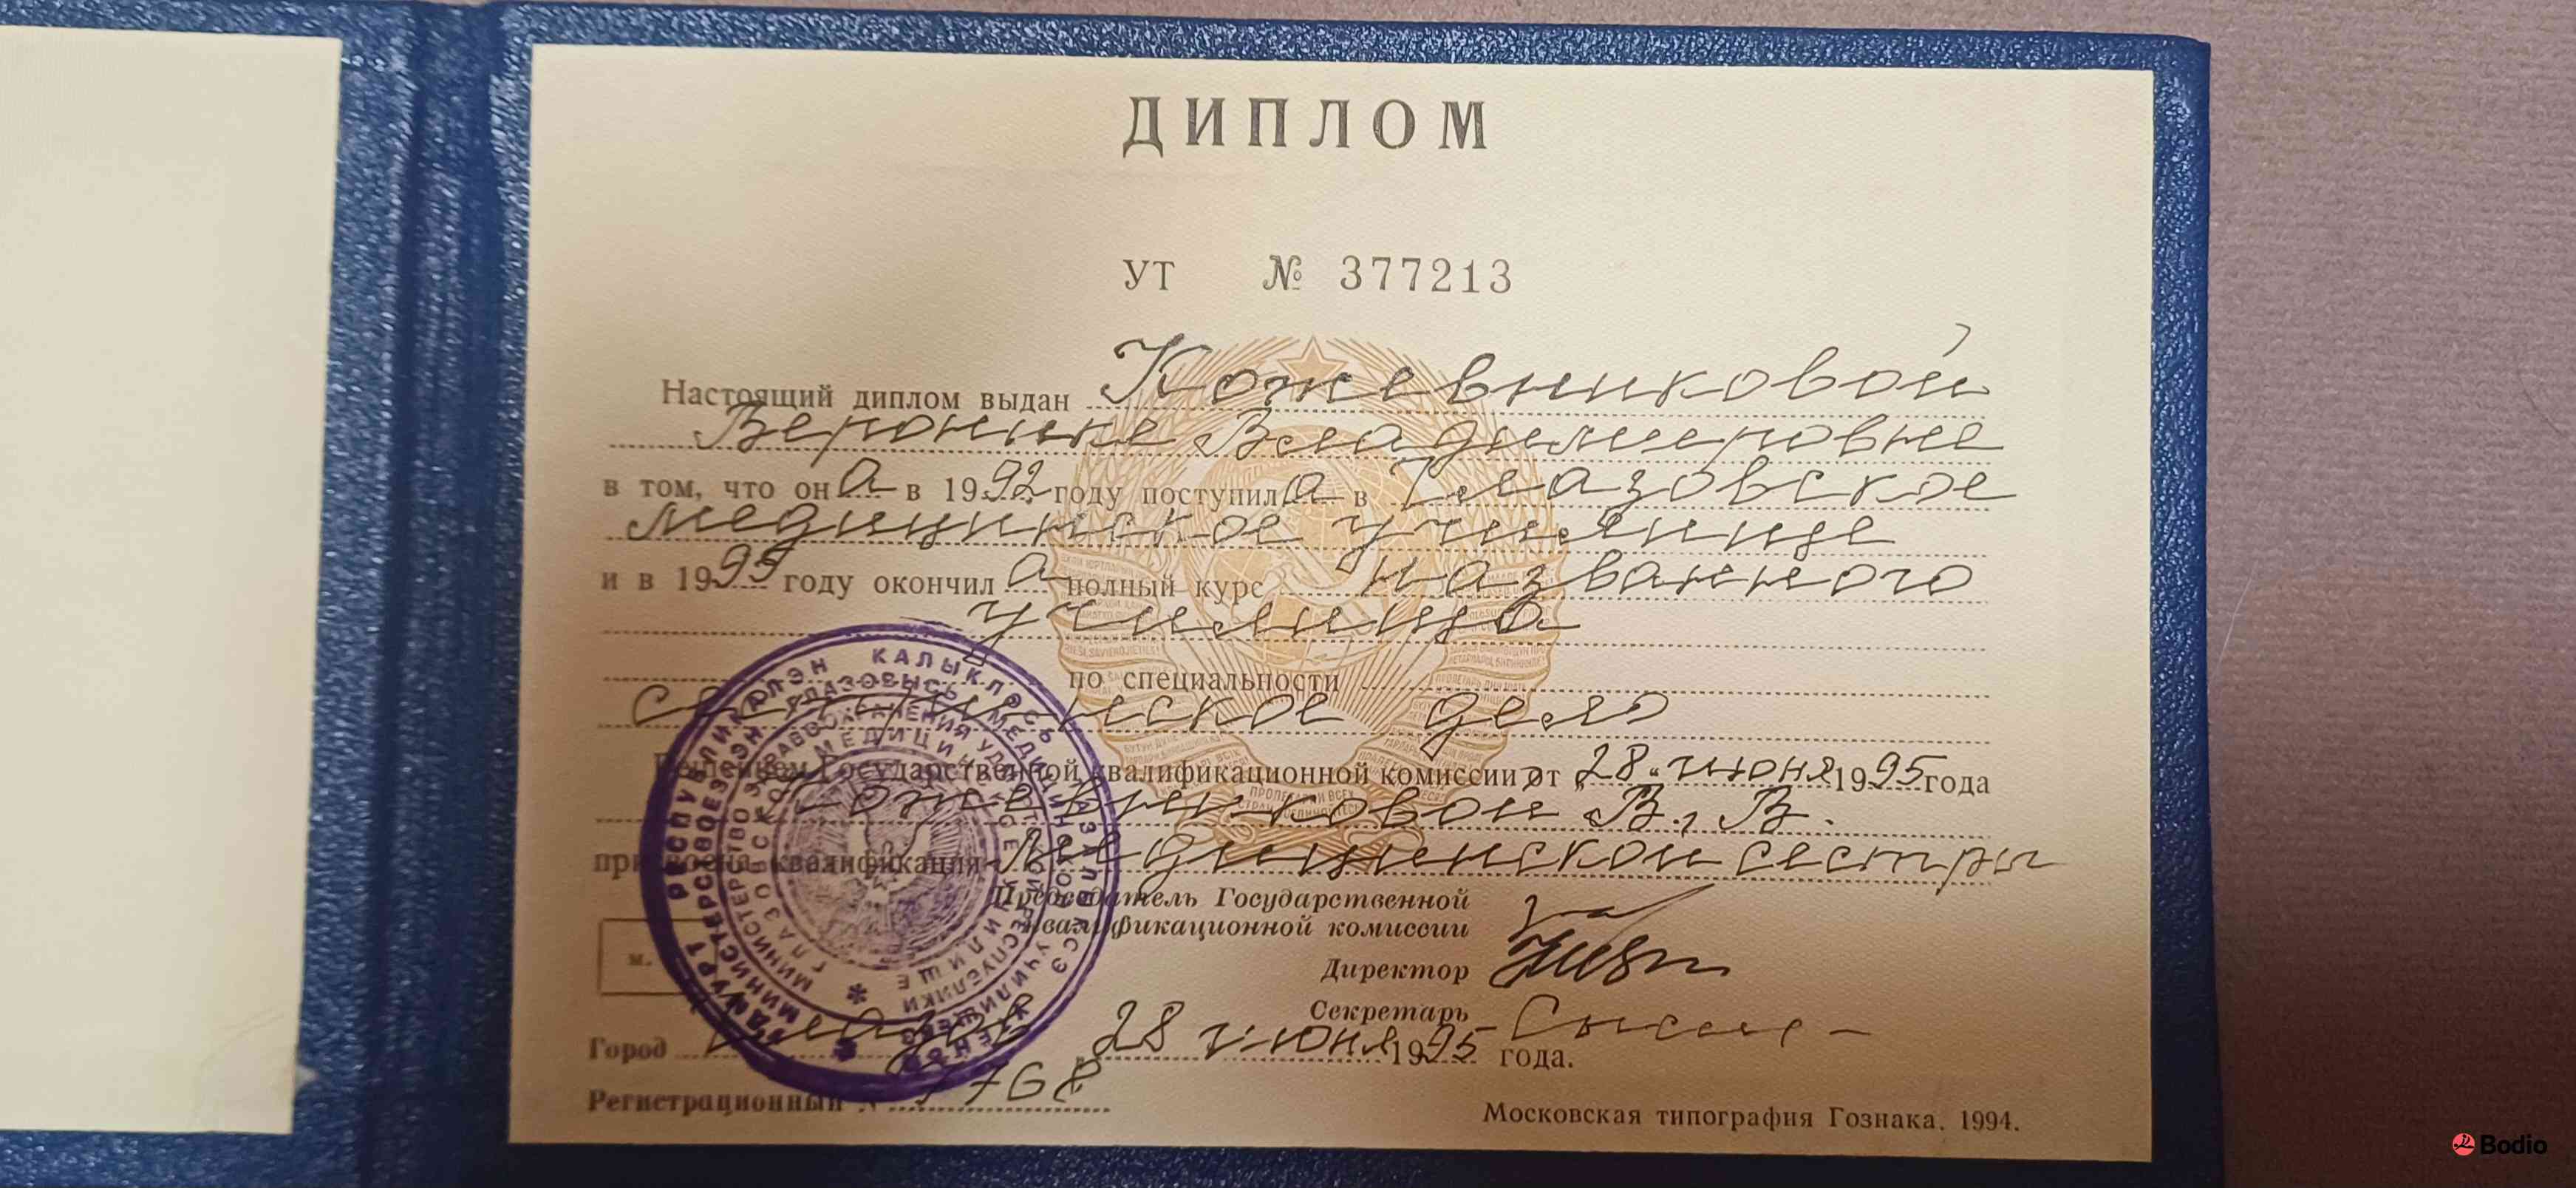 ДИПЛОМ
УТ № 377213
Настоящий диплом выдан Кожевниковой
Веронике Владимировне
в том, что она в 1992 году поступила в Глазовское
медицинское училище
и в 1995 году окончила полный курс названного
училища
по специальности
сестринское дело
Решением Государственной квалификационной комиссии от „28" июня 1995 года
Кожевниковой В. В.
присвоена квалификация медицинской сестры
Председатель Государственной
квалификационной комиссии
Директор
Секретарь
м.
Город Глазов „28 июня 1995 года.
Регистрационный № 7768
Московская типография Гознака. 1994.
МИНИСТЕРСТВО ЗДРАВООХРАНЕНИЯ УДМУРТСКОЙ РЕСПУБЛИКИ
ГЛАЗОВСКОЕ МЕДИЦИНСКОЕ УЧИЛИЩЕ
Bodio